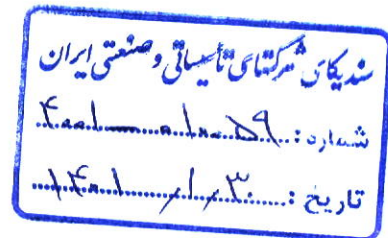 سندیکای شرکتهای تأسیساتی و صنعتی ایران
شماره:
تاریخ: ۱۴۰۱/۱/۳۰